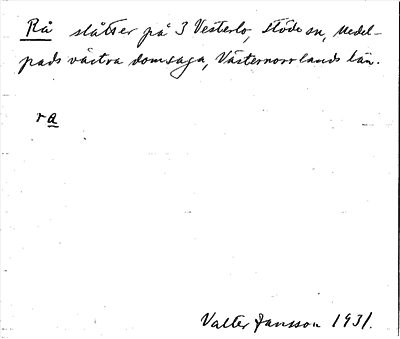 Rå slåtter på 3 Vesterlo, Stöde sn, Medel-
pads västra domsaga, Västernorrlands län.
ra
Valter Jansson 1931.